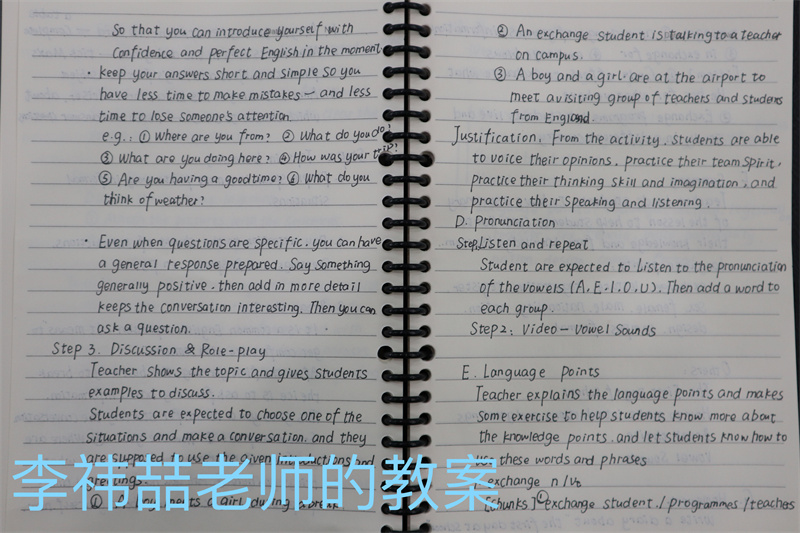 So that you can introduce yourself with
confidence and perfect English in the moment.
· keep your answers short and simple so you
have less time to make mistakes — and less
time to lose someone's attention.
e.g.: ① Where are you from? ② What do you do?
③ What are you doing here? ④ How was your trip?
⑤ Are you having a good time? ⑥ What do you
think of weather?
· Even when questions are specific, you can have
a general response prepared. Say something
generally positive, then add in more detail
keeps the conversation interesting. Then you can
ask a question.
Step 3. Discussion & Role-play
Teacher shows the topic and gives students
examples to discuss.
Students are expected to choose one of the
situations and make a conversation, and they
are supposed to use the given introductions and
greetings.
① A boy meets a girl during a break
② An exchange student is talking to a teacher
on campus.
③ A boy and a girl are at the airport to
meet a visiting group of teachers and students
from England.
Justification: From the activity, students are able
to voice their opinions, practice their team spirit,
practice their thinking skill and imagination, and
practice their speaking and listening.
D. Pronunciation
Step1 Listen and repeat
Student are expected to listen to the pronunciation
of the vowels (A, E, I, O, U). Then add a word to
each group.
Step 2: Video — Vowel Sounds
E. Language points
Teacher explains the language points and makes
some exercise to help students know more about
the knowledge points, and let students know how to
use these words and phrases
exchange n / vt
[chunks] ① exchange student / programmes / teachers
李祎喆老师的教案